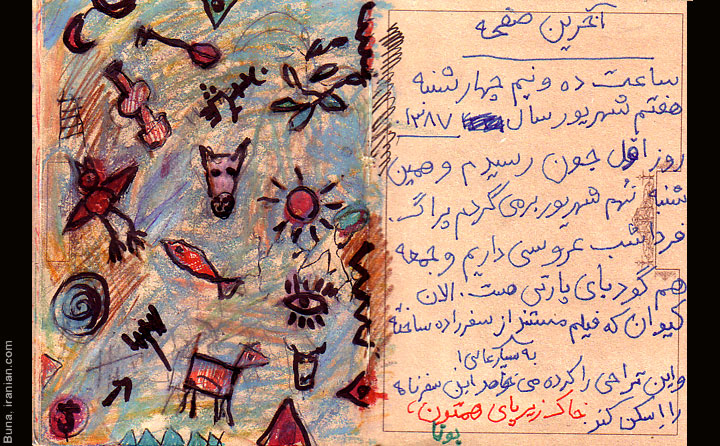 آخرین صفحه
ساعت ده و نیم چهارشنبه
هفتم شهریور سال ۱۳۸۷.
روز اول جون رسیدم و همین
شنبه نهم شهریور برمی گردم پراگ.
فردا شب عروسی داریم و جمعه
هم گود بای پارتی ست. الان
کیوان که فیلم مستند از سفر زاده ساخته
و این تراحی را کرده می خواهد این سفرنامه
را اسکن کند. خاک زیر پای همتون،
بونا
Buna, iranian.com